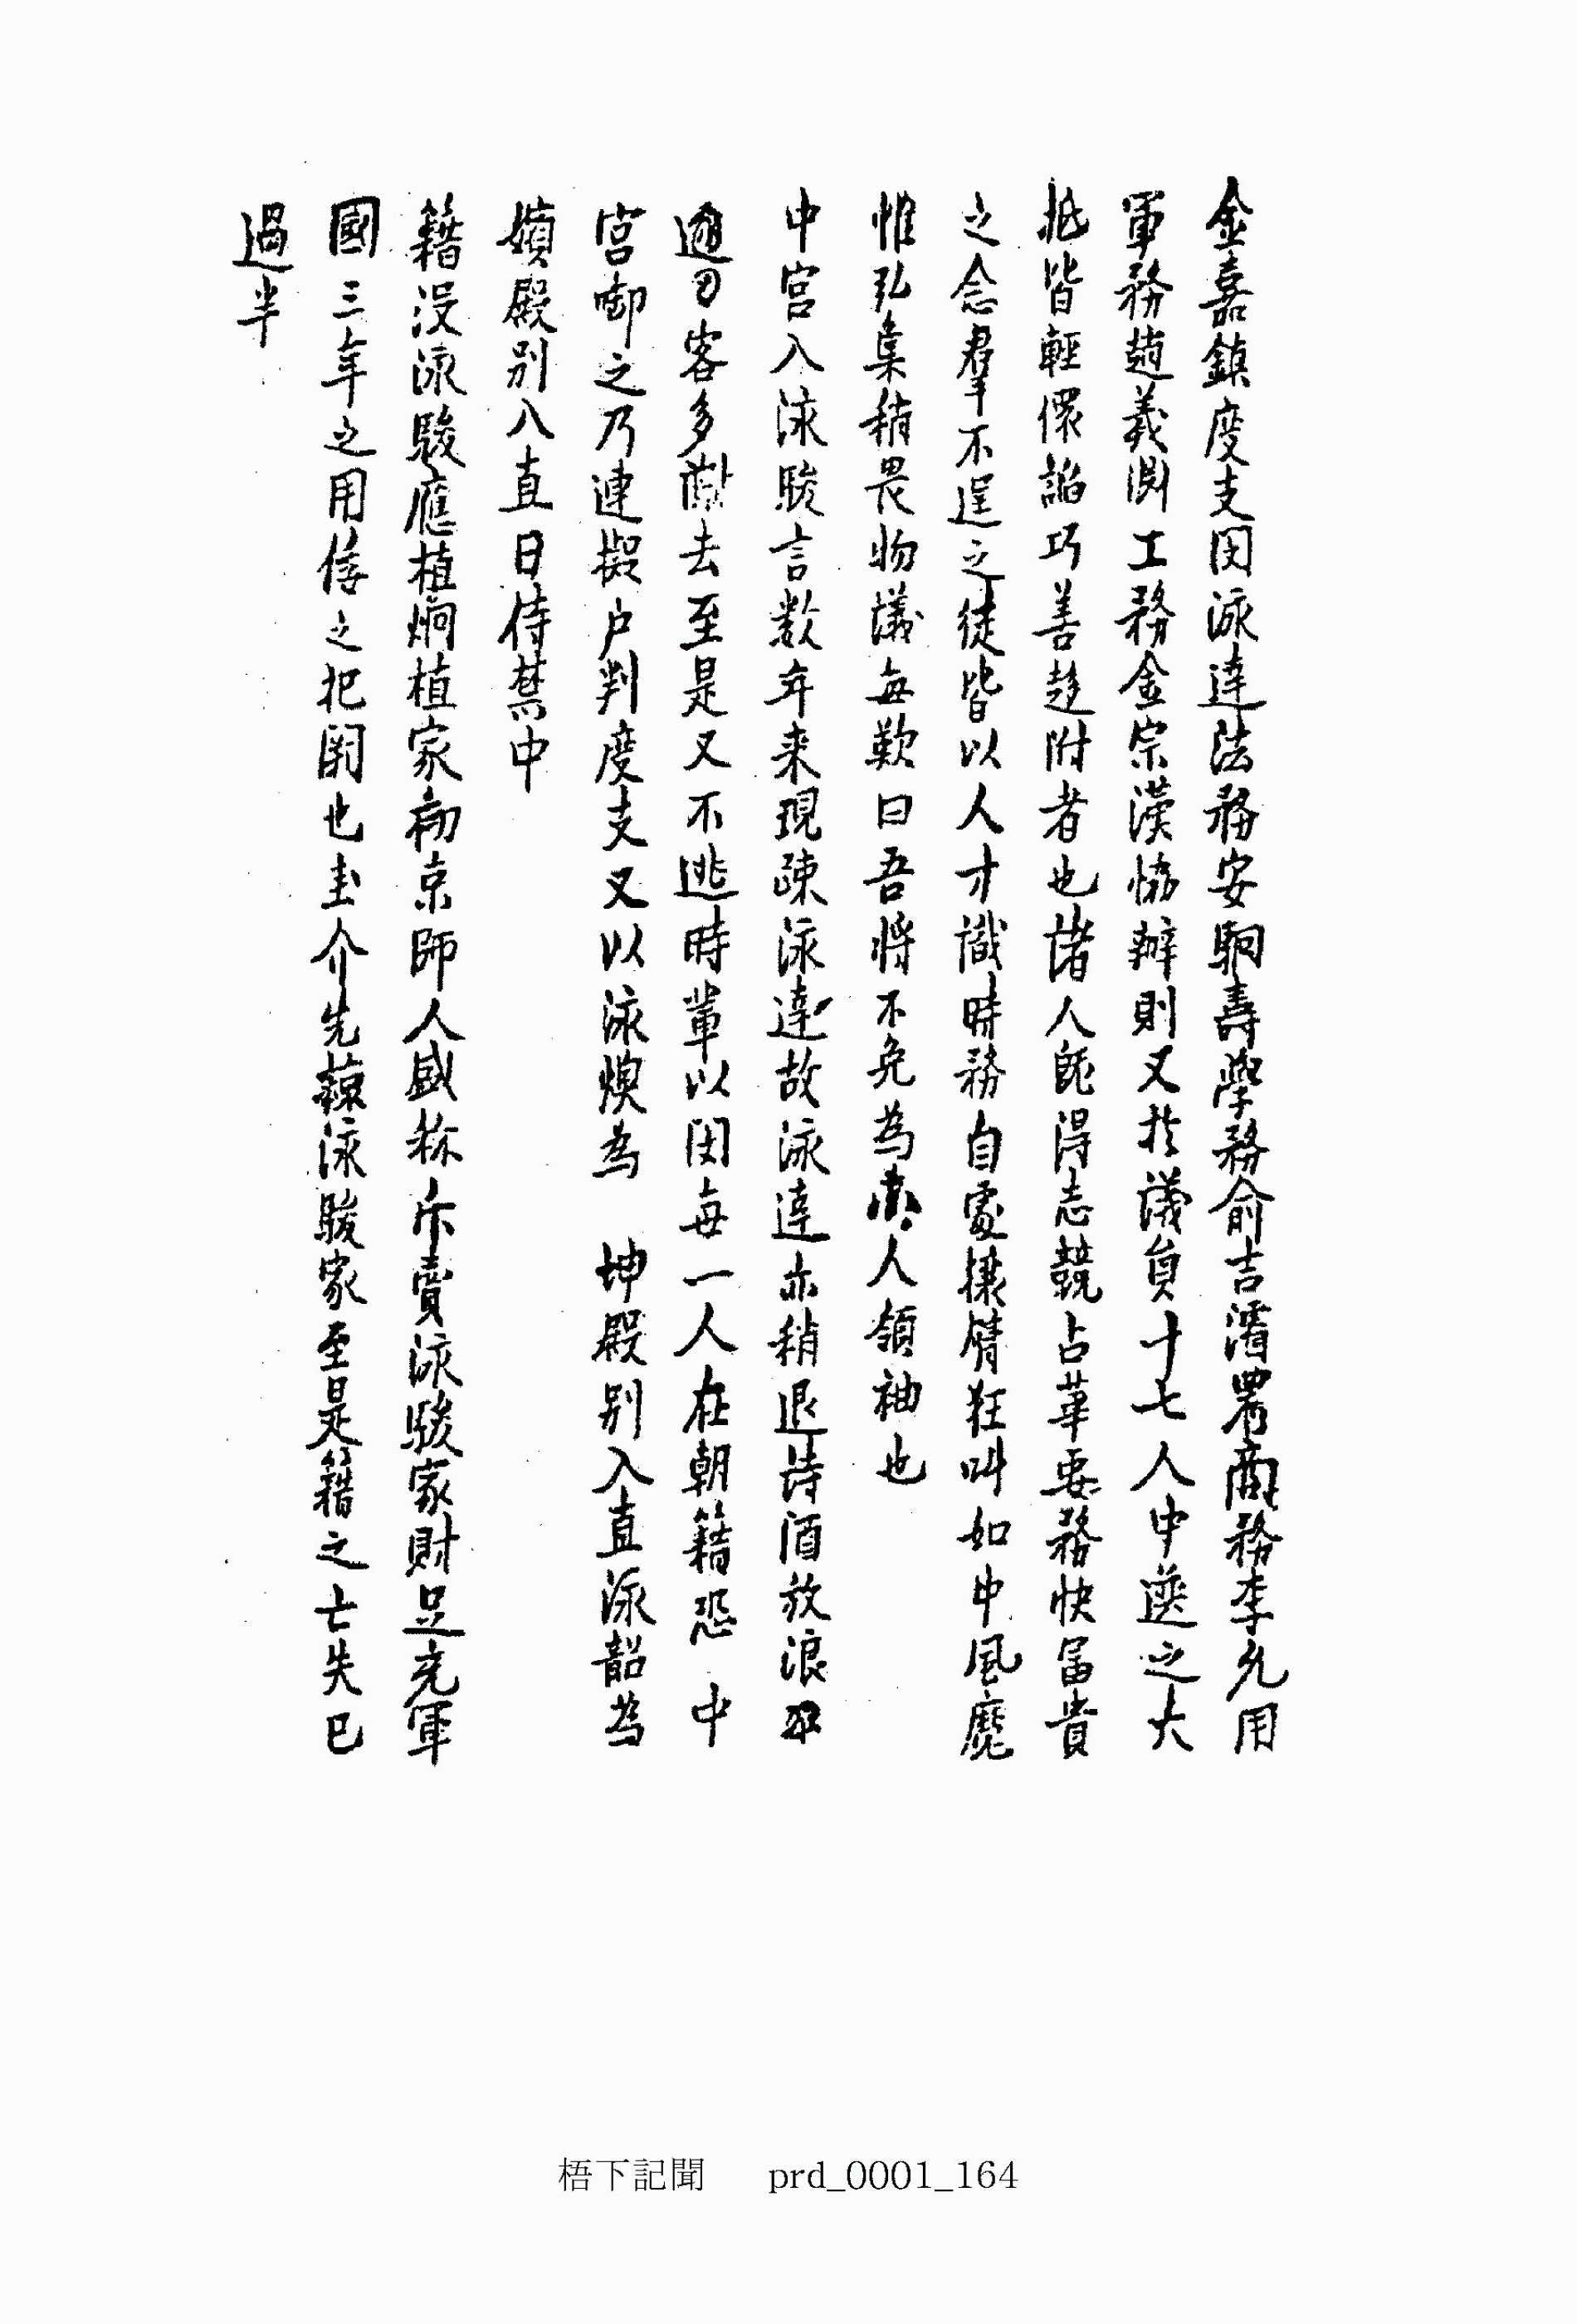 金嘉鎮度支閔泳達法務安駉壽學務俞吉濬署商務李允用
軍務趙義淵工務金宗漢協辦則又於議員十七人中選之大
抵皆輕儇謟巧善趍附者也諸人旣得志競占華要務快富貴
之念羣不逞之徒皆以人才識時務自處攘臂狂叫如中風魔
惟弘集稍畏物議每歎曰吾將不免為人領袖也
中宮入泳駿言數年来現踈泳達故泳達亦稍退詩酒放浪
客多去至是又不逃時輩以閔每一人在朝籍恐 中
宮啣之乃連擬戶判度支又以泳煥為 坤殿別入直泳韶為
嬪殿別入直日侍禁中
籍沒泳駿應植炯植家初京師人盛称斥賣泳駿家財足充軍
國三年之用倭之把闕也圭介先掠泳駿家至是籍之亡失已
過半
梧下記聞 prd_0001_164